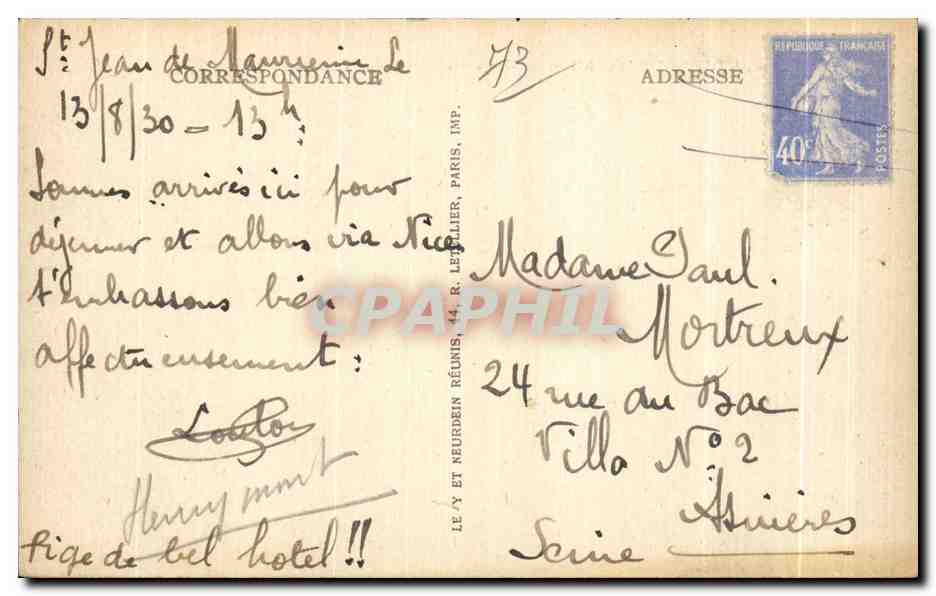 St Jean de Maurienne Le
CORRESPONDANCE
13/8/30 = 13h:
Sommes arrivés ici pour
déjeuner et allons via Nice
t'embassons bien
affectueusement:
Loulou
Henry mont
Pige de bel hotel!!
LEVY ET NEURDEIN RÉUNIS, 44, R. LETELLIER, PARIS, IMP.
73
ADRESSE
RÉPUBLIQUE FRANÇAISE
40c
POSTES
Madame Paul.
Mortreux
24 rue du Bac
Villa No 2
Asnières
Seine
CPAPHIL